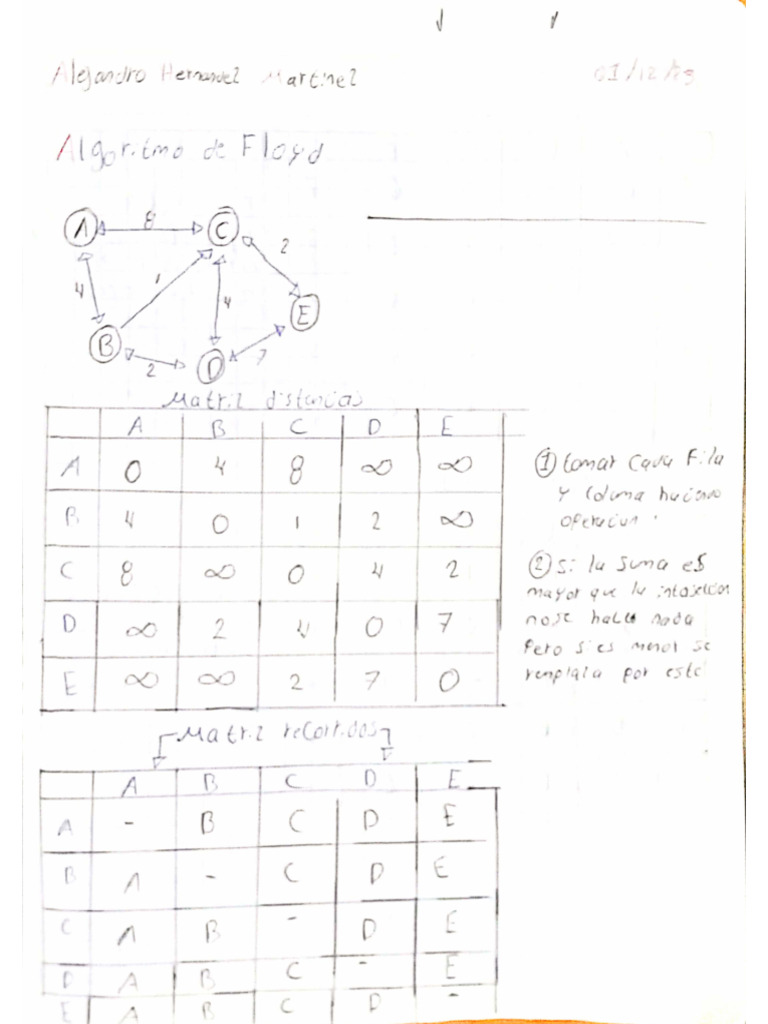 Alejandro Hernandez Martinez 01/12/23
Algoritmo de Floyd
A 8 C
2
4 1 4 E
B 2 D 7
Matriz distancias
A B C D E
A 0 4 8 ∞ ∞
B 4 0 1 2 ∞
C 8 ∞ 0 4 2
D ∞ 2 4 0 7
E ∞ ∞ 2 7 0
① tomar cada Fila
y coluna haciendo
operacion.
② si la suma es
mayor que la
no se hace nada
Pero si es menor se
remplaza por este
Matriz recorridos
A B C D E
A - B C D E
B A - C D E
C A B - D E
D A B C - E
E A B C D -